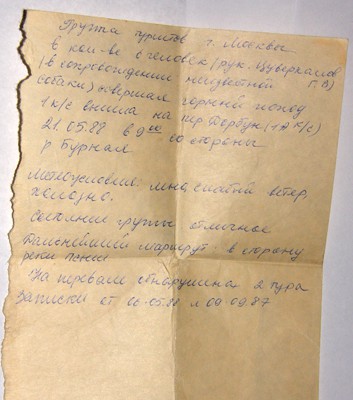 Группа туристов г. Москвы
в кол-ве 6 человек (рук. Цуверкалов Г. В)
(в сопровождении неизвестной
собаки) совершая горный поход
1 к/с вышла на пер.
21.05.88 в 9⁰⁰ со стороны
р. Бурная
Метеоусловия: мгла, слабый ветер,
холодно.
Состояние группы отличное
Дальнейший маршрут: в сторону
реки
На перевале обнаружена 2 тура
Записки от 06.05.88 и 09.09.87